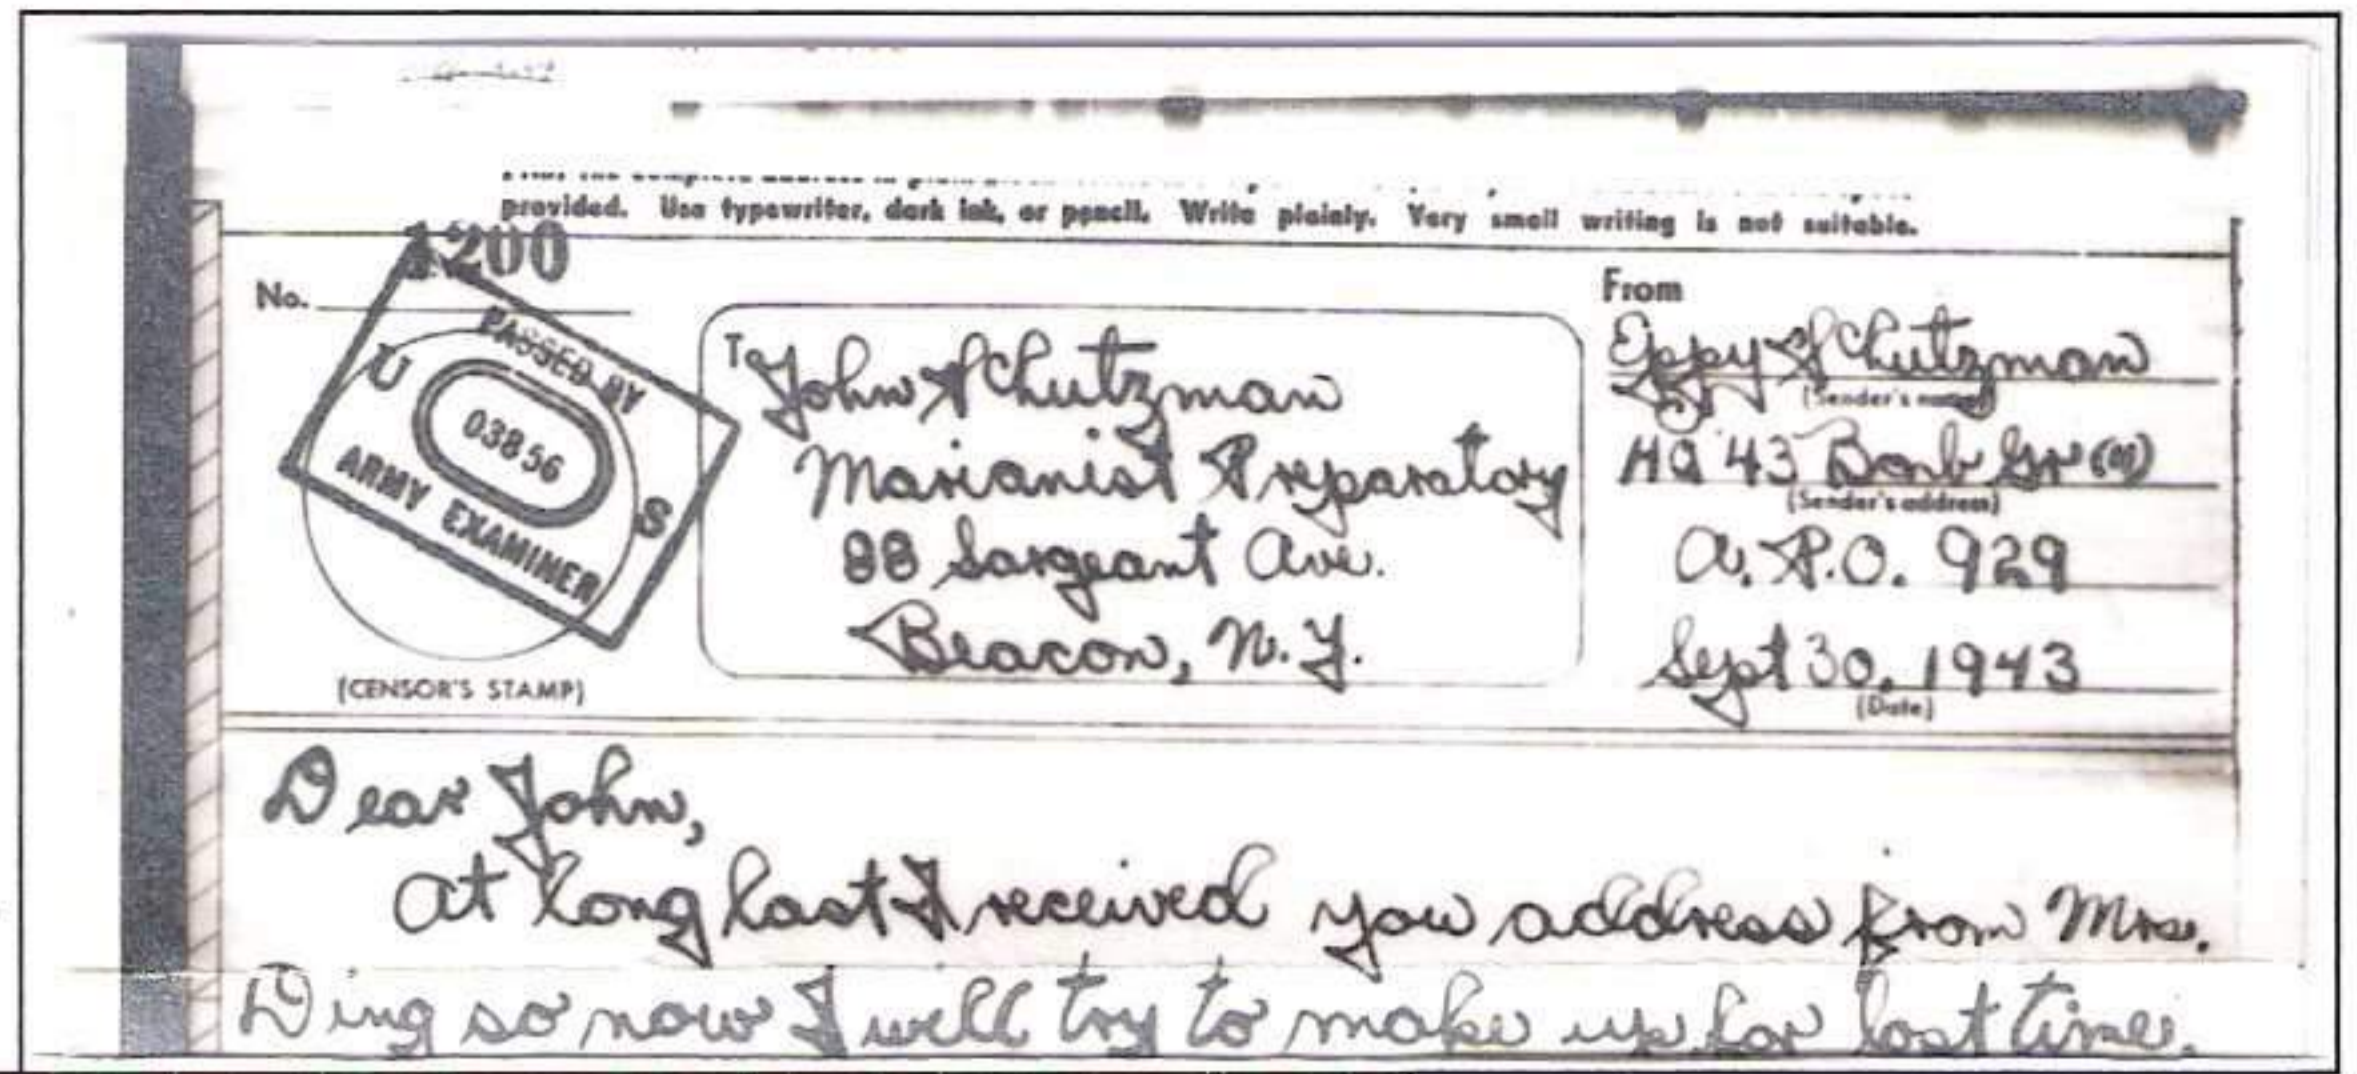 provided. Use typewriter, dark ink, or pencil. Write plainly. Very small writing is not suitable.
1200
No.
PASSED BY
U S
03856
ARMY EXAMINER
(CENSOR'S STAMP)
To
John Schutzman
Marianist Preparatory
88 Sargeant Ave.
Beacon, N.Y.
From
Eppy Schutzman
(Sender's name)
HQ 43 Bomb Gr (H)
(Sender's address)
A.P.O. 929
Sept 30, 1943
(Date)
Dear John,
At long last I received you address from Mrs.
Ding so now I will try to make up for lost time.